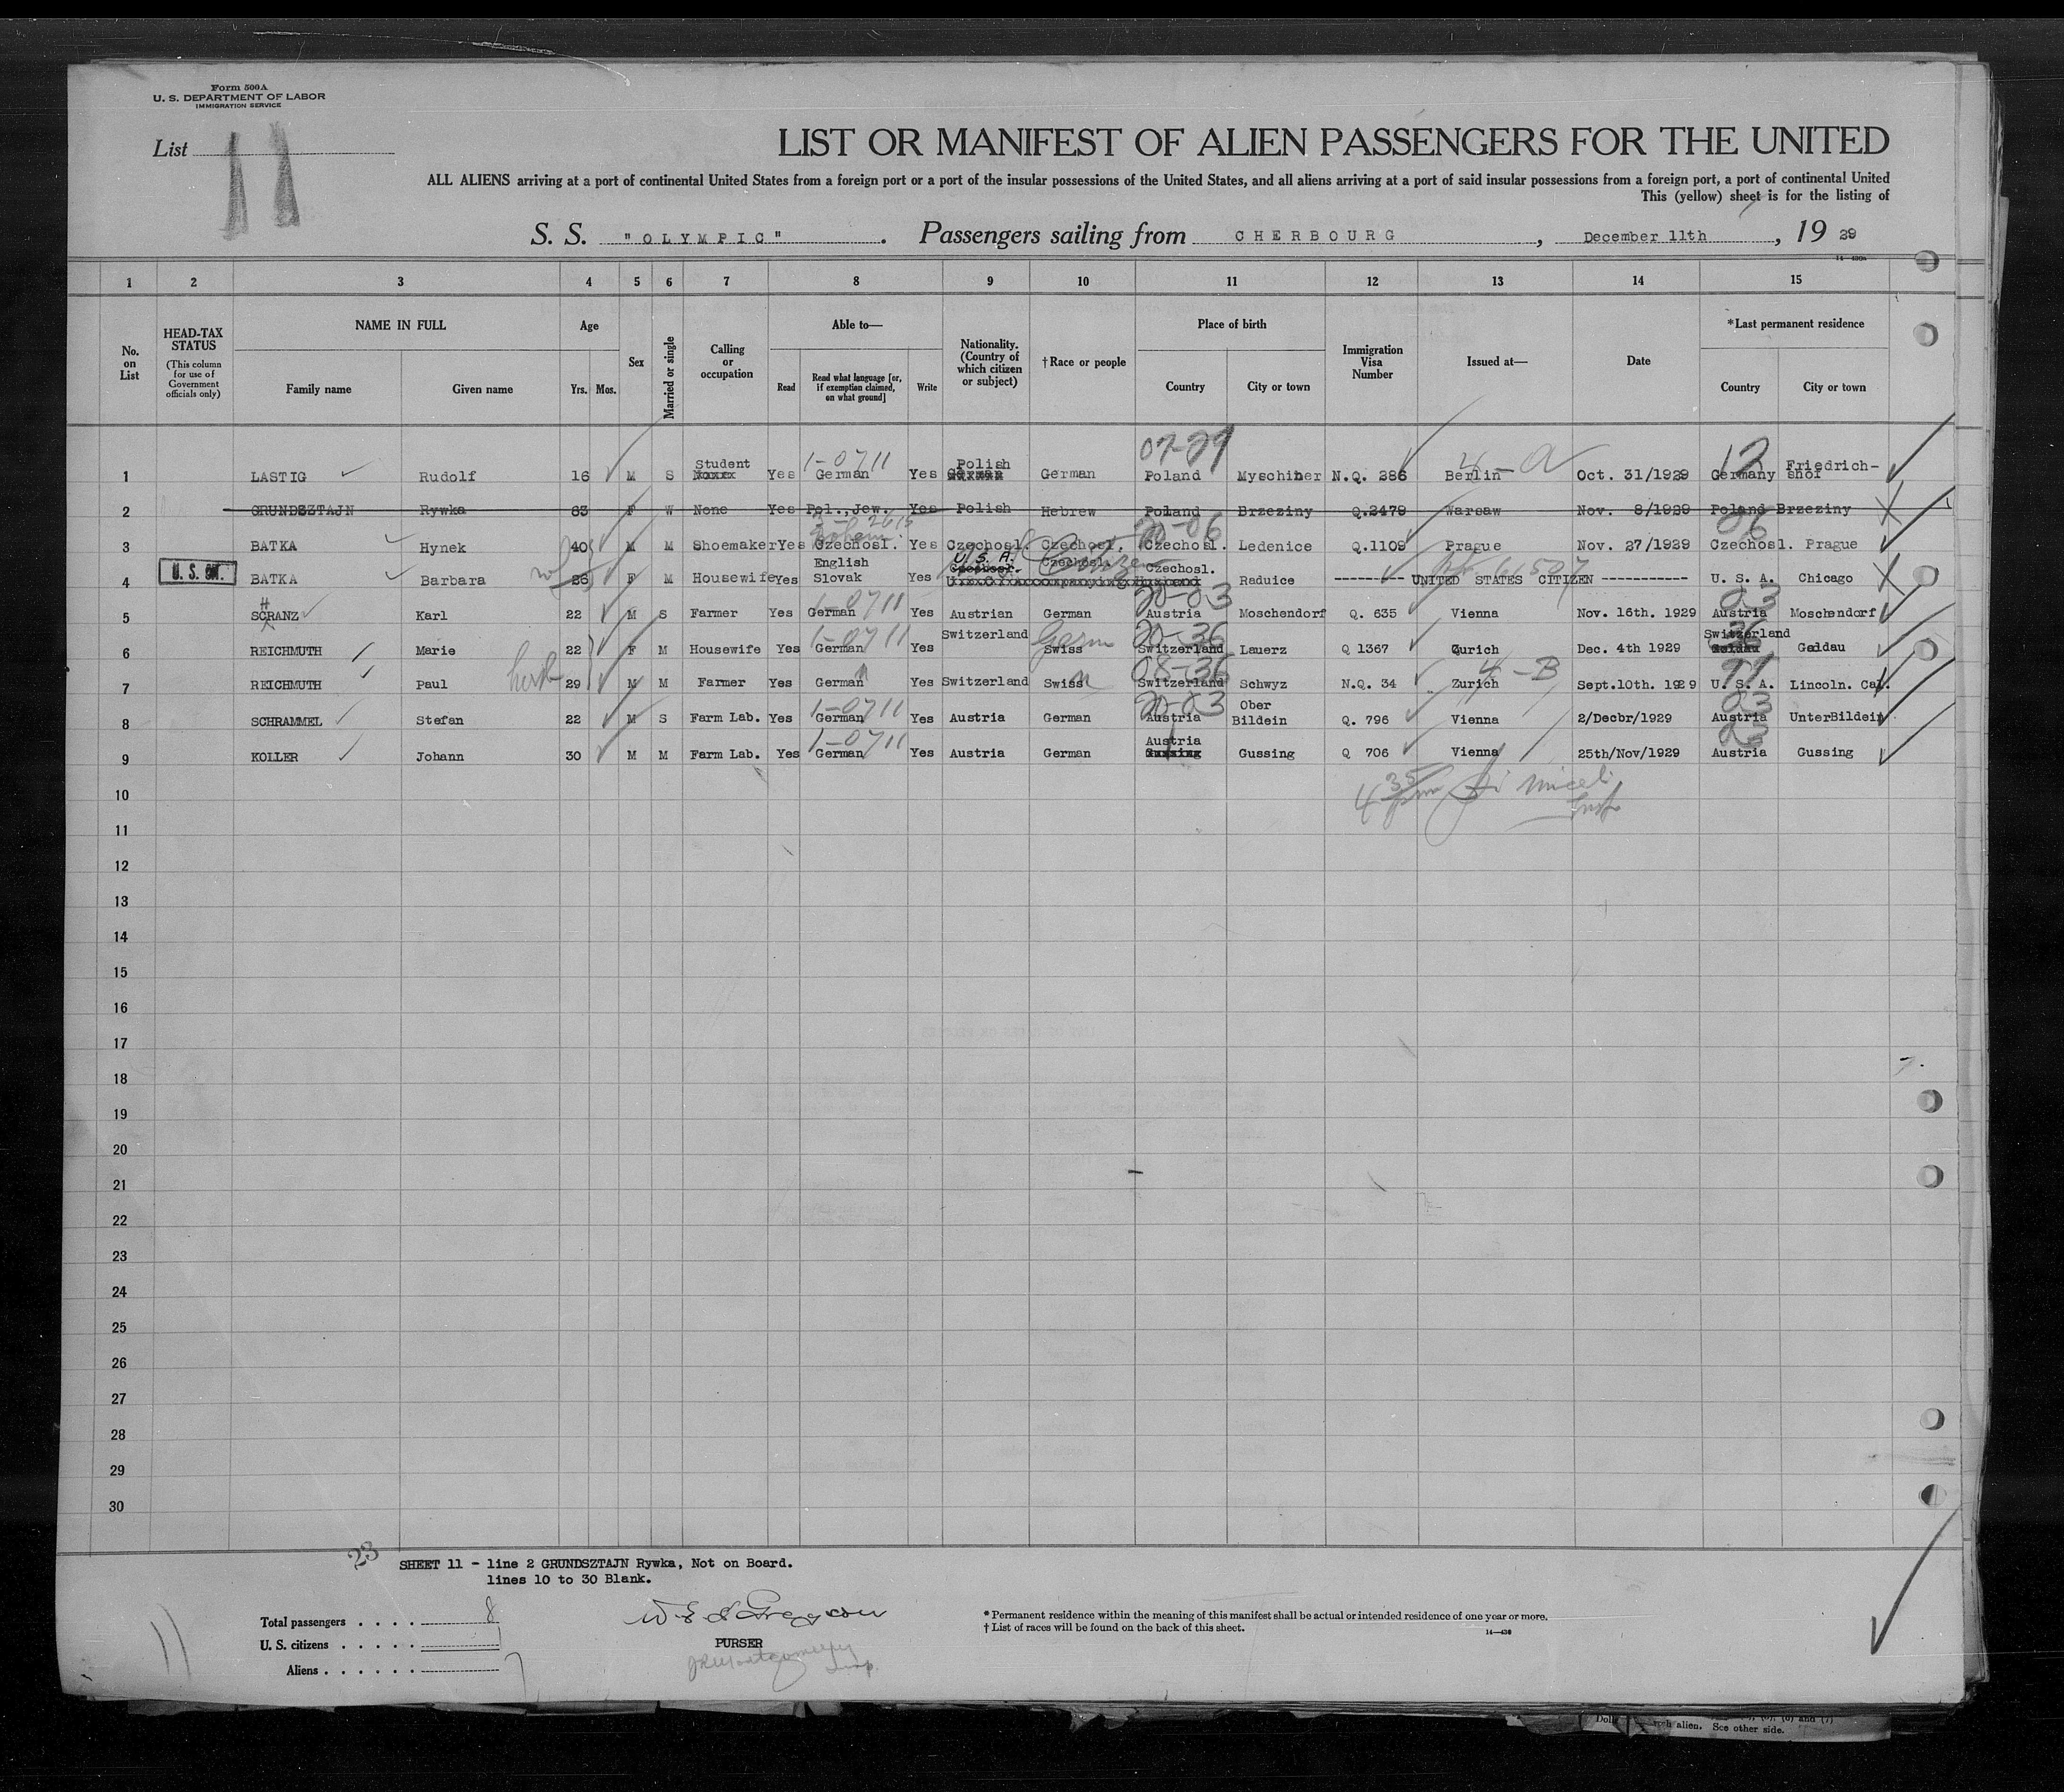 Form 500A
U. S. DEPARTMENT OF LABOR
IMMIGRATION SERVICE
List 11
LIST OR MANIFEST OF ALIEN PASSENGERS FOR THE UNITED
ALL ALIENS arriving at a port of continental United States from a foreign port or a port of the insular possessions of the United States, and all aliens arriving at a port of said insular possessions from a foreign port, a port of continental United
This (yellow) sheet is for the listing of
S. S. "OLYMPIC" . Passengers sailing from CHERBOURG , December 11th , 19 29
14—430a
1 2 3 4 5 6 7 8 9 10 11 12 13 14 15
No. on List
HEAD-TAX STATUS (This column for use of Government officials only)
NAME IN FULL
Family name Given name
Age
Yrs. Mos.
Sex
Married or single
Calling or occupation
Able to—
Read Read what language [or, if exemption claimed, on what ground] Write
Nationality. (Country of which citizen or subject)
†Race or people
Place of birth
Country City or town
Immigration Visa Number
Issued at—
Date
*Last permanent residence
Country City or town
07-29
1 LASTIG Rudolf 16 M S Student Yes 1-0711 German Yes Polish German Poland Myschiner N.Q. 286 4-a Berlin Oct. 31/1929 12 Germany Friedrich-shof
2 GRUNDSZTAJN Rywka 63 F W None Yes Pol.,Jew. Yes Polish Hebrew Poland Brzeziny Q.2479 Warsaw Nov. 8/1929 Poland Brzeziny
20-06 26
3 BATKA Hynek 40 M M Shoemaker Yes Bohem. Czechosl. Yes Czechosl. Czechosl. Czechosl. Ledenice Q.1109 Prague Nov. 27/1929 Czechosl. Prague
U. S. CIT.
4 BATKA Barbara wf 36 F M Housewife Yes English Slovak Yes U. S. A. Czechosl. Citizen Czechosl. Raduice --------- UNITED STATES CITIZEN ----------- U. S. A. Chicago
5 SCRANZ H Karl 22 M S Farmer Yes 1-0711 German Yes Austrian German 20-03 Austria Moschendorf Q. 635 Vienna Nov. 16th. 1929 03 Austria Moschendorf
6 REICHMUTH Marie 22 F M Housewife Yes 1-0711 German Yes Switzerland Germ Swiss 20-36 Switzerland Lauerz Q 1367 Zurich Dec. 4th 1929 Switzerland 36 Goldau
7 REICHMUTH Paul husb 29 M M Farmer Yes German Yes Switzerland Swiss 08-36 Switzerland Schwyz N.Q. 34 4-B Zurich Sept.10th. 1929 U. S. A. Lincoln. Cal.
8 SCHRAMMEL Stefan 22 M S Farm Lab. Yes 1-0711 German Yes Austria German 20-03 Austria Ober Bildein Q. 796 Vienna 2/Decbr/1929 03 Austria UnterBildein
9 KOLLER Johann 30 M M Farm Lab. Yes 1-0711 German Yes Austria German Austria Gussing Q 706 Vienna 25th/Nov/1929 03 Austria Gussing
10
4 35 pm Insp
11
12
13
14
15
16
17
18
19
20
21
22
23
24
25
26
27
28
29
30
23
SHEET 11 - line 2 GRUNDSZTAJN Rywka, Not on Board.
lines 10 to 30 Blank.
Total passengers . . . . 8
U. S. citizens . . . . . 1
Aliens . . . . . . 7
11
PURSER
* Permanent residence within the meaning of this manifest shall be actual or intended residence of one year or more.
† List of races will be found on the back of this sheet.
14—430
alien. See other side.